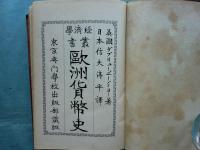 英國ダブリユ、エー、シヨー著
日本信夫淳平譯
經濟學叢書
歐洲貨幣史
東京專門學校出版部藏版